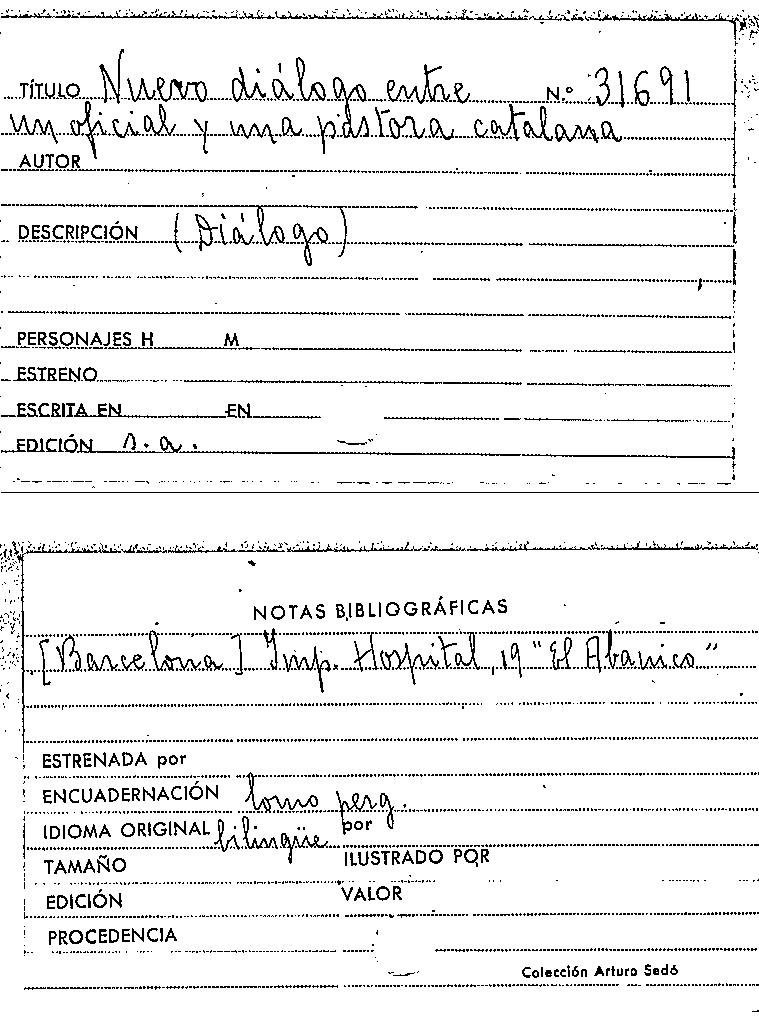 TÍTULO Nuevo diálogo entre N.º 31691
un oficial y una pastora catalana
AUTOR
DESCRIPCIÓN (Diálogo)
PERSONAJES H M
ESTRENO
ESCRITA EN EN
EDICIÓN s.a.
NOTAS BIBLIOGRÁFICAS
[Barcelona] Imp. Hospital, 19 "El Abanico"
ESTRENADA por
ENCUADERNACIÓN lomo perg.
IDIOMA ORIGINAL bilingüe por
TAMAÑO ILUSTRADO POR
EDICIÓN VALOR
PROCEDENCIA
Colección Arturo Sedó